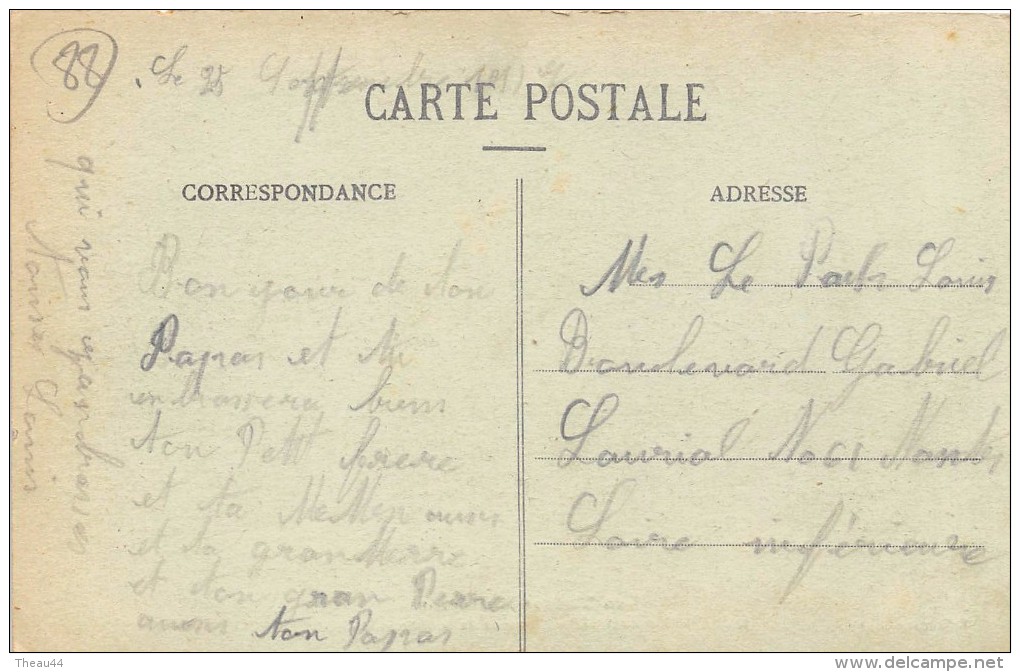 88
Le 25
CARTE POSTALE
CORRESPONDANCE
Bonjour de ton
Papas et tu
embrassera biens
ton Petit frere
et ta MeMer aussi
et ta granMerre
et ton gran Perre
aussi ton Papas
qui vous enbrasses
Louis
ADRESSE
Mes Le Louis
Boulevard Gabriel
Lauriol No Nantes
Loire inférieure
Theau44
www.delcampe.net